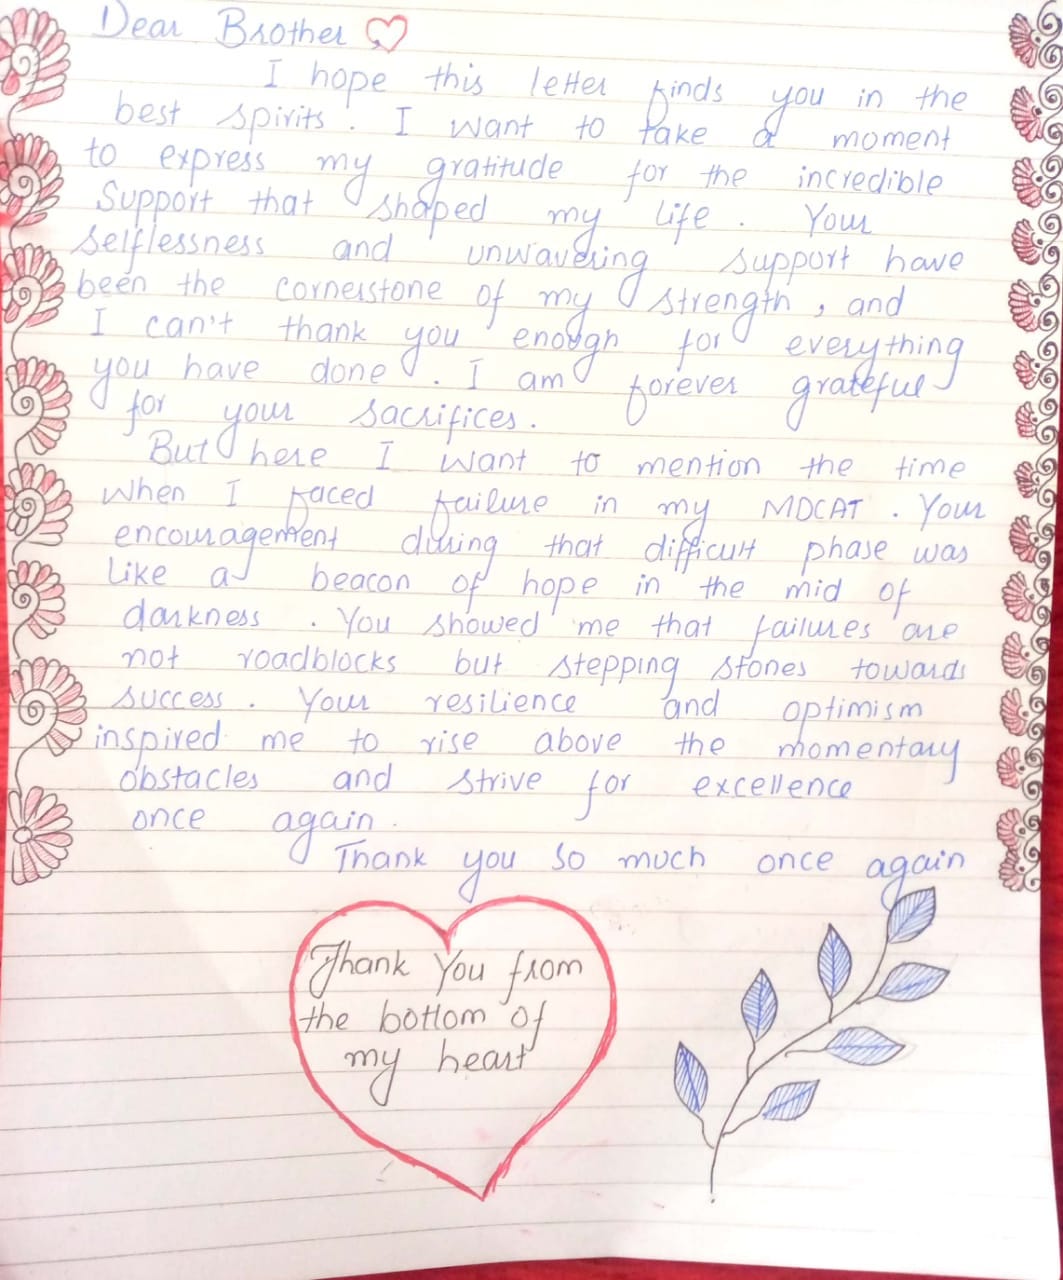 Dear Brother
I hope this letter finds you in the
best spirits. I want to take a moment
to express my gratitude for the incredible
Support that shaped my life. Your
selflessness and unwavering support have
been the cornerstone of my strength, and
I can't thank you enough for everything
you have done. I am forever grateful
for your sacrifices.
But here I want to mention the time
when I faced failure in my MDCAT. Your
encouragement during that difficult phase was
like a beacon of hope in the mid of
darkness. You showed me that failures are
not roadblocks but stepping stones towards
success. Your resilience and optimism
inspired me to rise above the momentary
obstacles and strive for excellence
once again.
Thank you so much once again
Thank You from
the bottom of
my heart